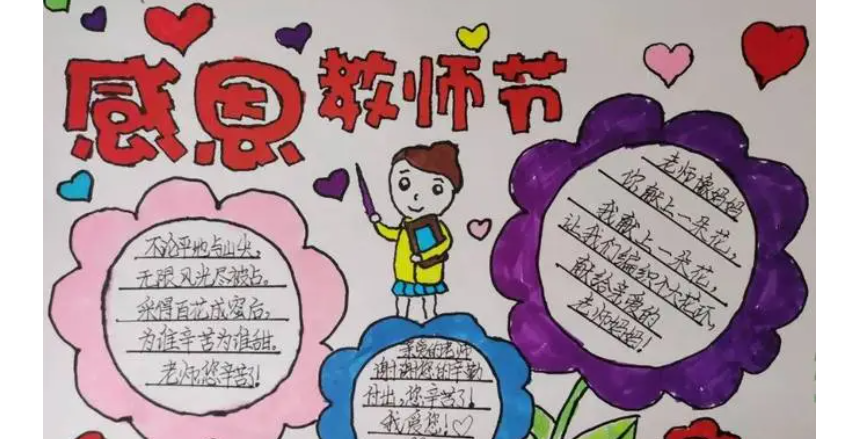 感恩教师节
不论平地与山尖，
无限风光尽被占。
采得百花成蜜后，
为谁辛苦为谁甜。
老师您辛苦了！
亲爱的老师
谢谢您的辛勤
付出，您辛苦了！
我爱您！♡
老师像妈妈
你献上一朵花，
我献上一朵花，
让我们编织个大花环，
献给亲爱的
老师妈妈！